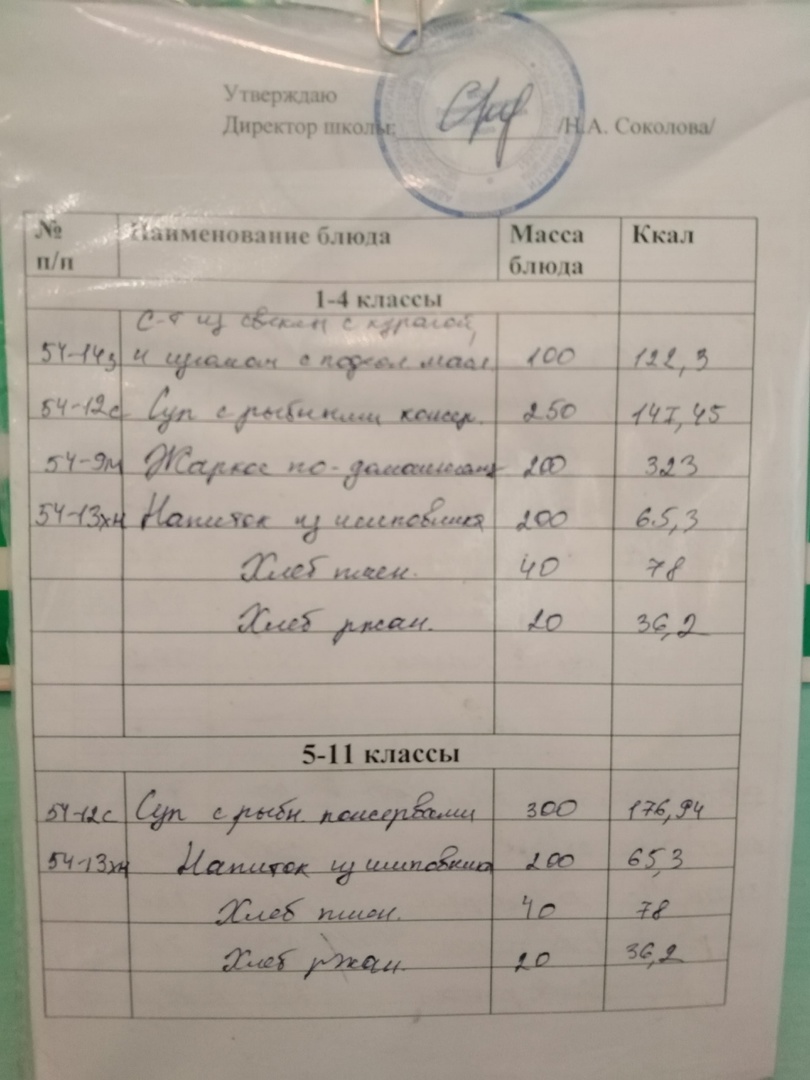 Утверждаю
Директор школы: /Н.А. Соколова/
№ п/п Наименование блюда Масса блюда Ккал
1-4 классы
С-т из свеклы с курагой,
54-14з и изюмом с подсол масл. 100 122,3
54-12с Суп с рыбными консер. 250 147,45
54-9м Жаркое по-домашнему 200 323
54-13хн Напиток из шиповника 200 65,3
Хлеб пшен. 40 78
Хлеб ржан. 20 36,2
5-11 классы
54-12с Суп с рыбн. консервами 300 176,94
54-13хн Напиток из шиповника 200 65,3
Хлеб пшен. 40 78
Хлеб ржан. 20 36,2